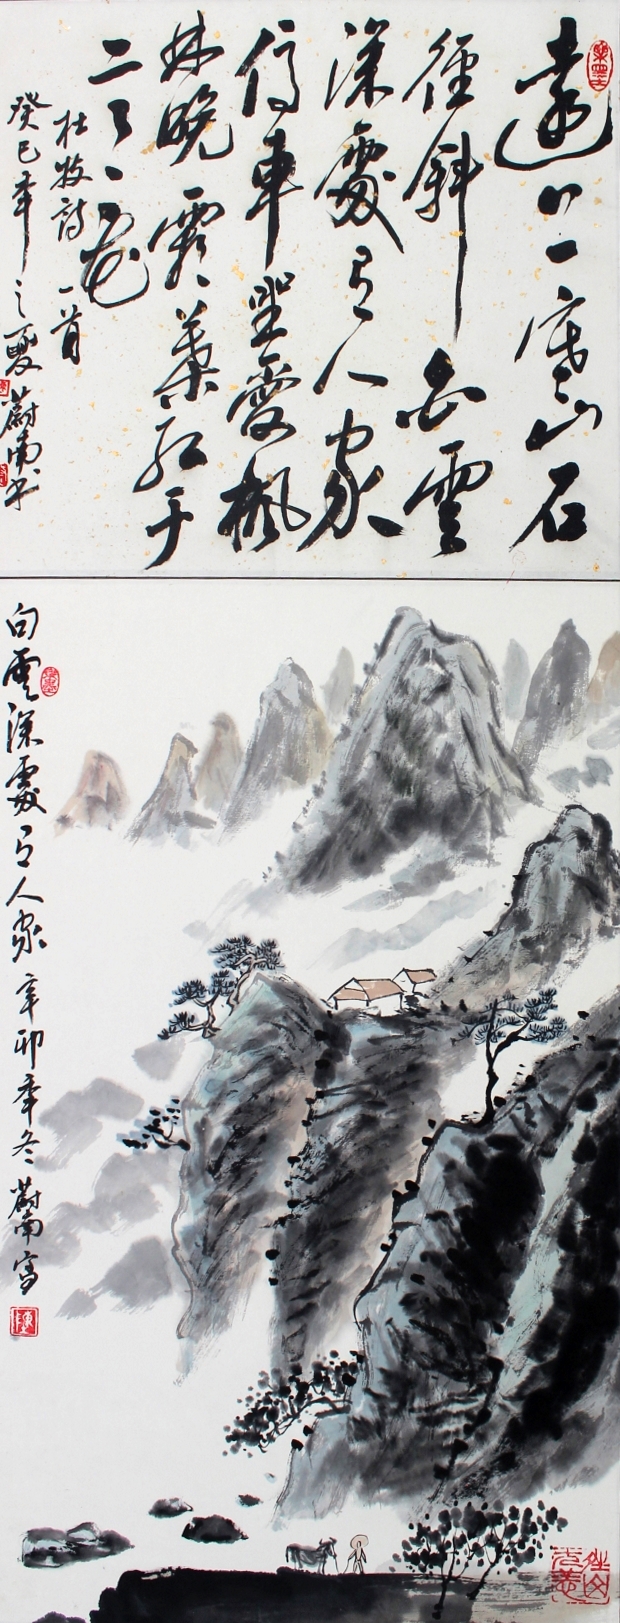 遠上寒山石
徑斜白雲
深處有人家
停車坐愛楓
林晚霜葉紅于
二月花
杜牧詩一首
癸巳年之夏蔚南書
白雲深處有人家辛卯年冬蔚南寫